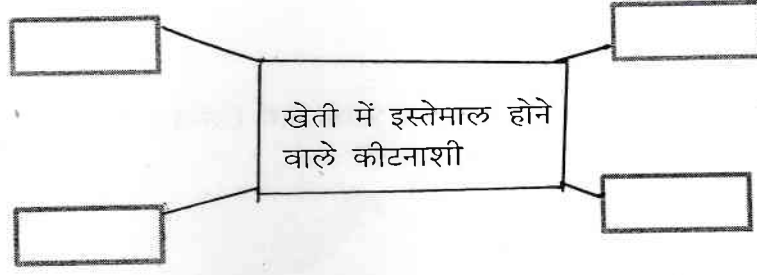 खेती में इस्तेमाल होने
वाले कीटनाशी